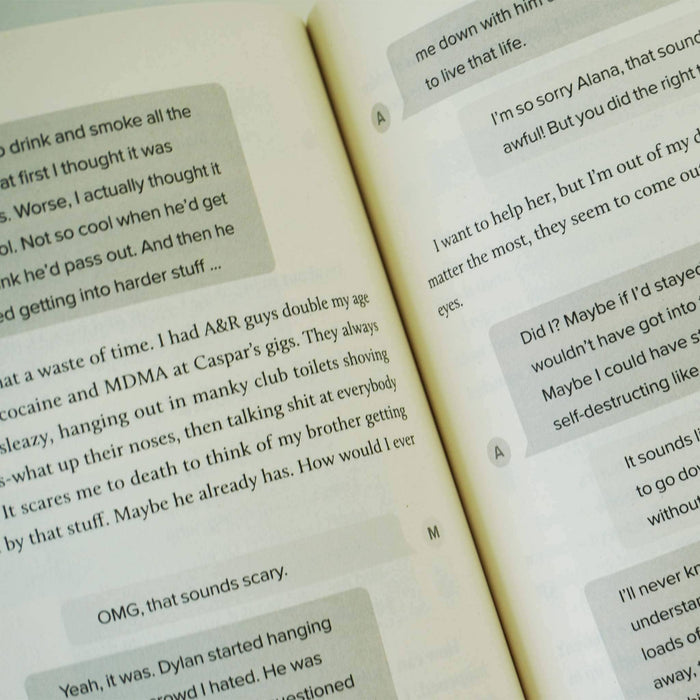 drink and smoke all the
at first I thought it was
Worse, I actually thought it
Not so cool when he'd get
he'd pass out. And then he
getting into harder stuff ...
a waste of time. I had A&R guys double my age
cocaine and MDMA at Caspar's gigs. They always
sleazy, hanging out in manky club toilets shoving
up their noses, then talking shit at everybody
It scares me to death to think of my brother getting
by that stuff. Maybe he already has. How would I ever
M
OMG, that sounds scary.
Yeah, it was. Dylan started hanging
I hated. He was
me down with him
to live that life.
A
I'm so sorry Alana, that sound
awful! But you did the right
I want to help her, but I'm out of my
matter the most, they seem to come
eyes.
Did I? Maybe if I'd stayed
wouldn't have got into
Maybe I could have
self-destructing like
A
It sounds
to go
without
I'll never
loads of
away,